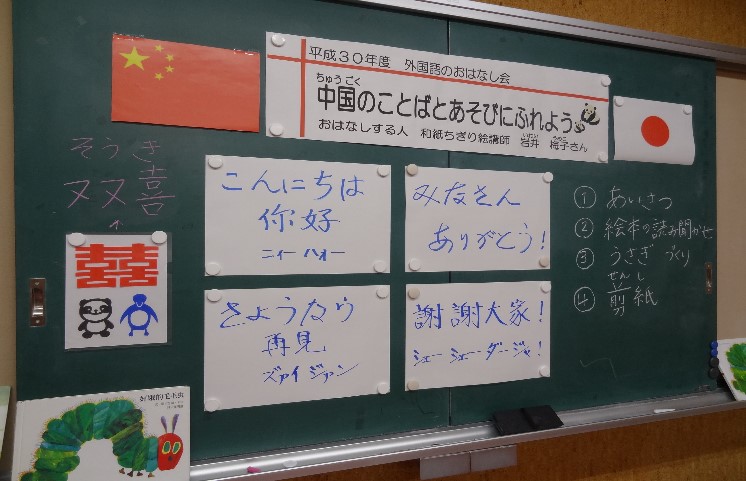 平成30年度 外国語のおはなし会
ちゅうごく
中国のことばとあそびにふれよう
おはなしする人 和紙ちぎり絵講師 岩井 梅子さん
そうき
双喜
囍
こんにちは
你好
ニィーハオー
みなさん
ありがとう!
さようなら
再見
ズァイジァン
謝謝大家!
シェーシェーダージャ!
① あいさつ
② 絵本の読み聞かせ
③ うさぎ づくり
せんし
④ 剪紙
好饿的毛毛虫